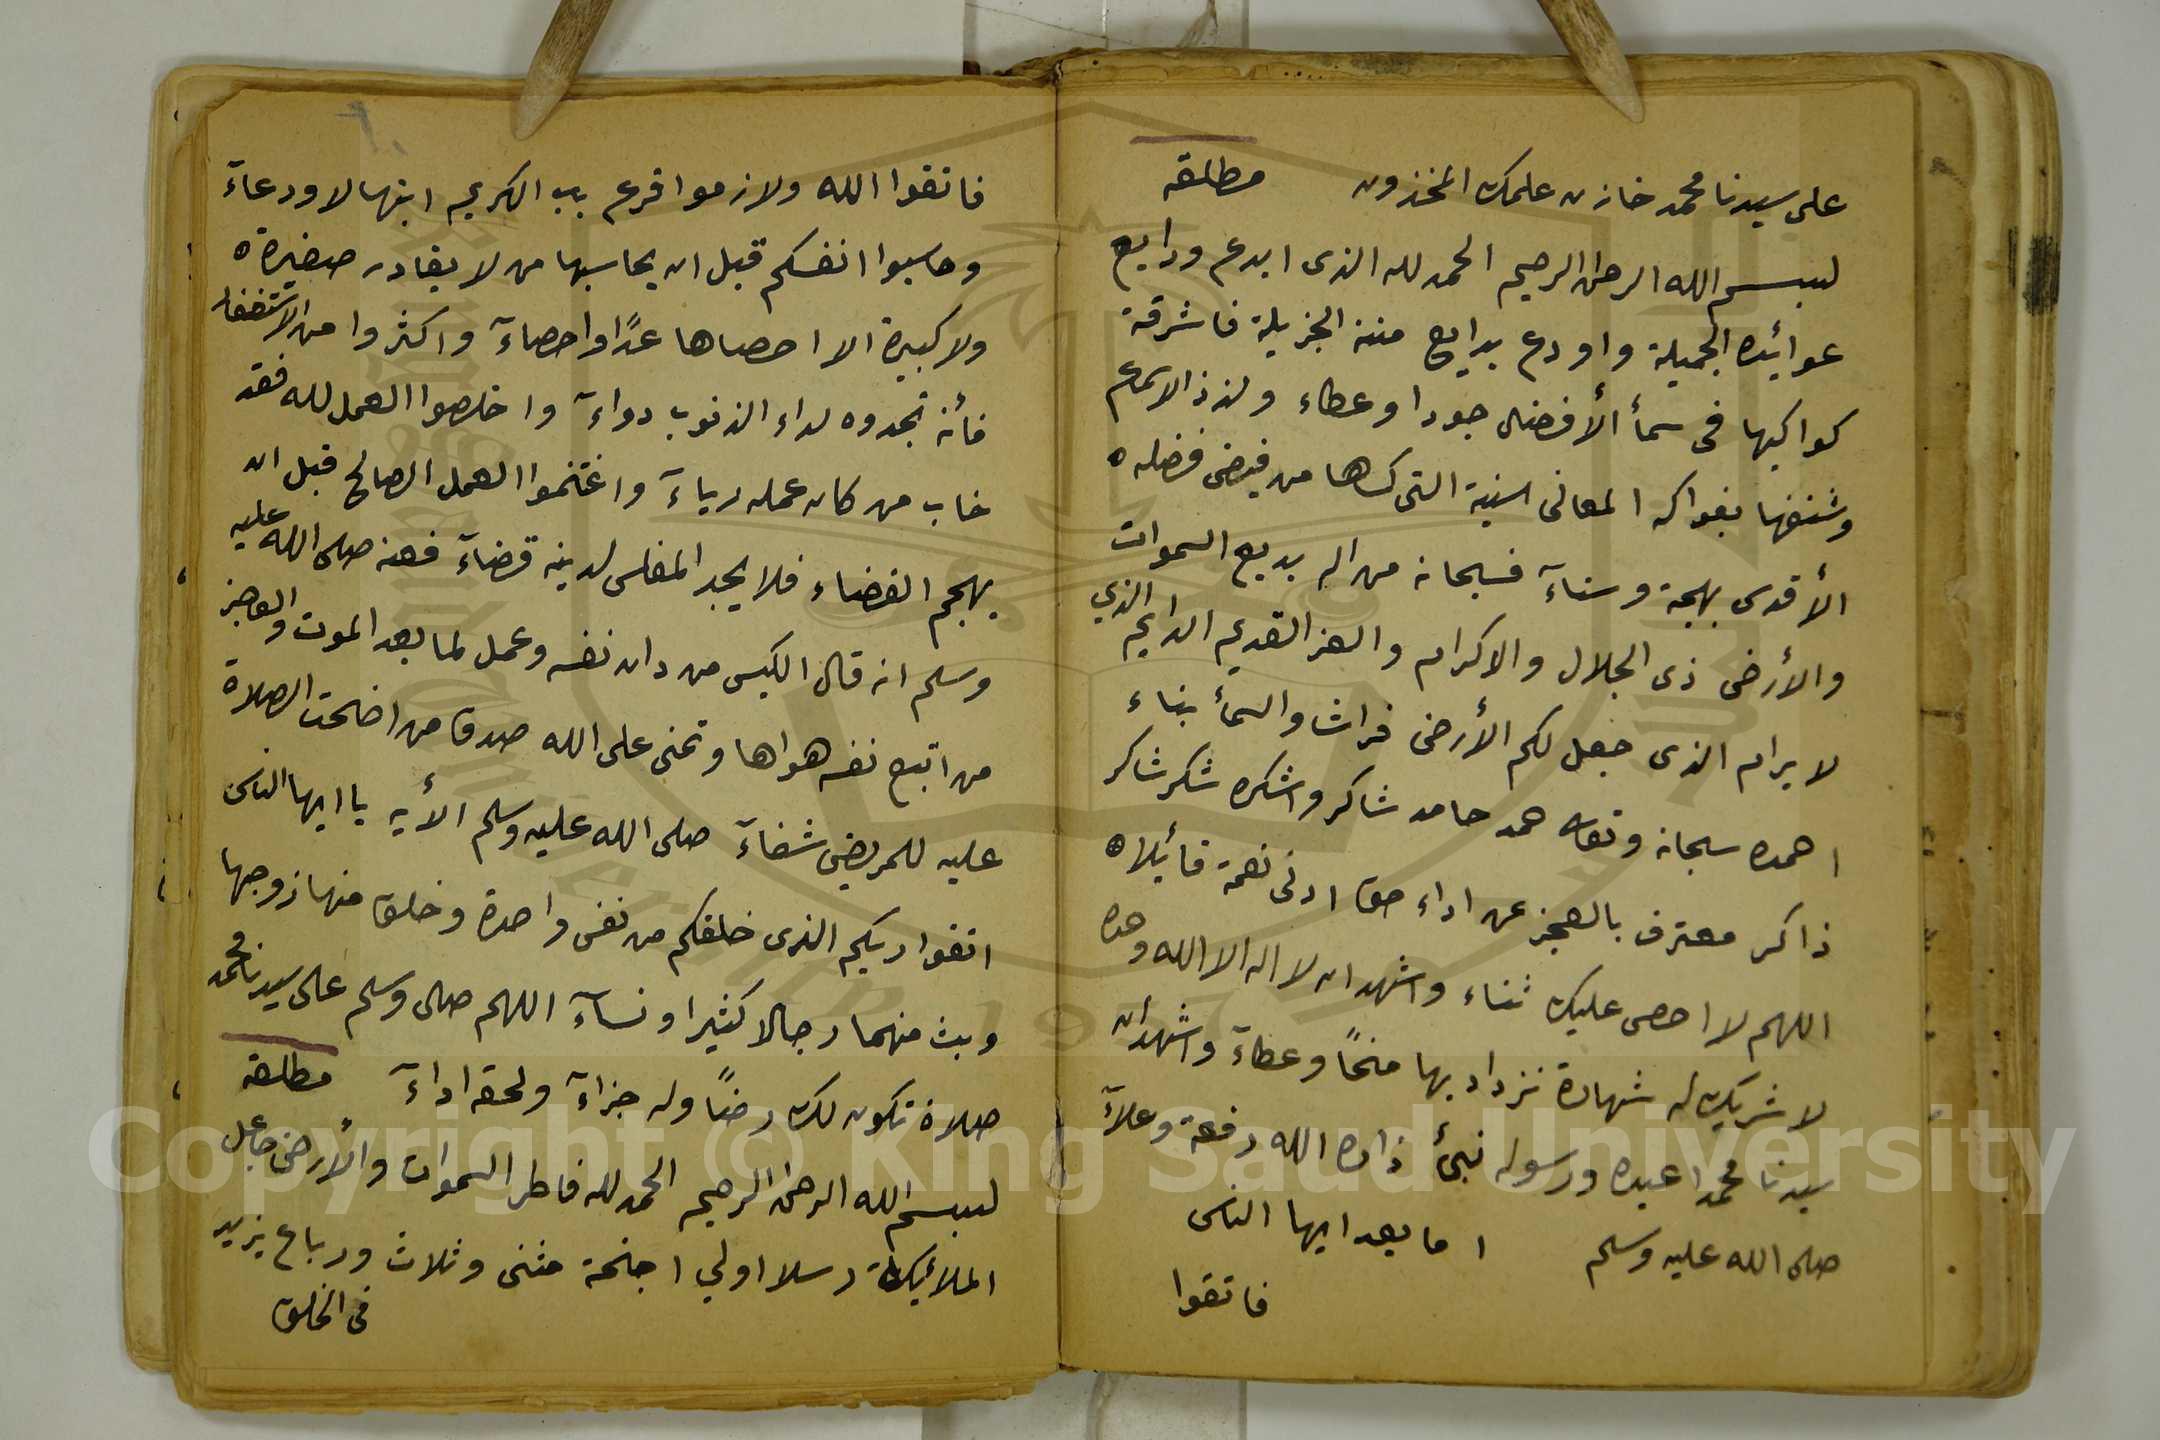 على سيدنا محمد خازن علمك المخذون مطلقه
لبسم الله الرحمن الرحيم الحمد لله الذى ابدع ودايع
عوائده الجميلة واودع بدايع مننه الجزيلة فاشرقة
كواكبها فى سمأ الأفضال جودا وعطاء ولذذ الاسماع
وشنفها بفواكه المعانى السنية التى كساها من فيض فضله
الأقدس بهجة وسناآ فسبحانه من اله بديع السموات
والأرض ذى الجلال والاكرام والعز القديم الدايم الذي
لا يرام الذى جعل لكم الأرض فراشا والسمأ بناء
احمده سبحانه وتعالى حمد حامد شاكر واشكره شكر شاكر
ذاكر معترف بالعجز عن اداء حق ادنى نعمة قائيلا
اللهم لا احصى عليك ثناء واشهد ان لا اله الا الله وحده
لا شريك له شهادة نزداد بها منحًا وعطآء واشهد ان
سيدنا محمدا عبده ورسوله نبئ زاده الله رفعة وعلآء
صلى الله عليه وسلم اما بعد ايها الناس
فاتقوا
فاتقوا الله ولازموا قرع باب الكريم ابتهالا ودعاآ
وحاسبوا انفسكم قبل ان يحاسبها من لا يغادر صغيرة
ولا كبيرة الا احصاها عدًا واحصاآ واكثروا من الاستغفار
فأنه تجدوه لداء الذنوب دواآ واخلصوا العمل لله فقد
خاب من كان عمله رياآ واغتنموا العمل الصالح قبل ان
يهجم القضاء فلا يجد المفلس لدينه قضاآ فعنه صلى الله عليه
وسلم انه قال الكيس من دان نفسه وعمل لما بعد الموت والعاجز
من اتبع نفسه هواها وتمنى على الله صدق من اضحت الصلاة
عليه للمريض شفاآ صلى الله عليه وسلم الأيه يا ايها الناس
اتقوا ربكم الذى خلقكم من نفس واحدة وخلق منها زوجها
وبث منهما رجالا كثيرا ونساآ اللهم صلى وسلم على سيدنا محمد
صلاة تكون لك رضًا وله جزاآ ولحقه اداآ مطلقه
لبسم الله الرحمن الرحيم الحمد لله فاطر السموات والأرض جاعل
الملائيكة رسلا اولي اجنحة مثنى وثلاث ورباع يزيد
فى الخلق
Copyright © King Saud University